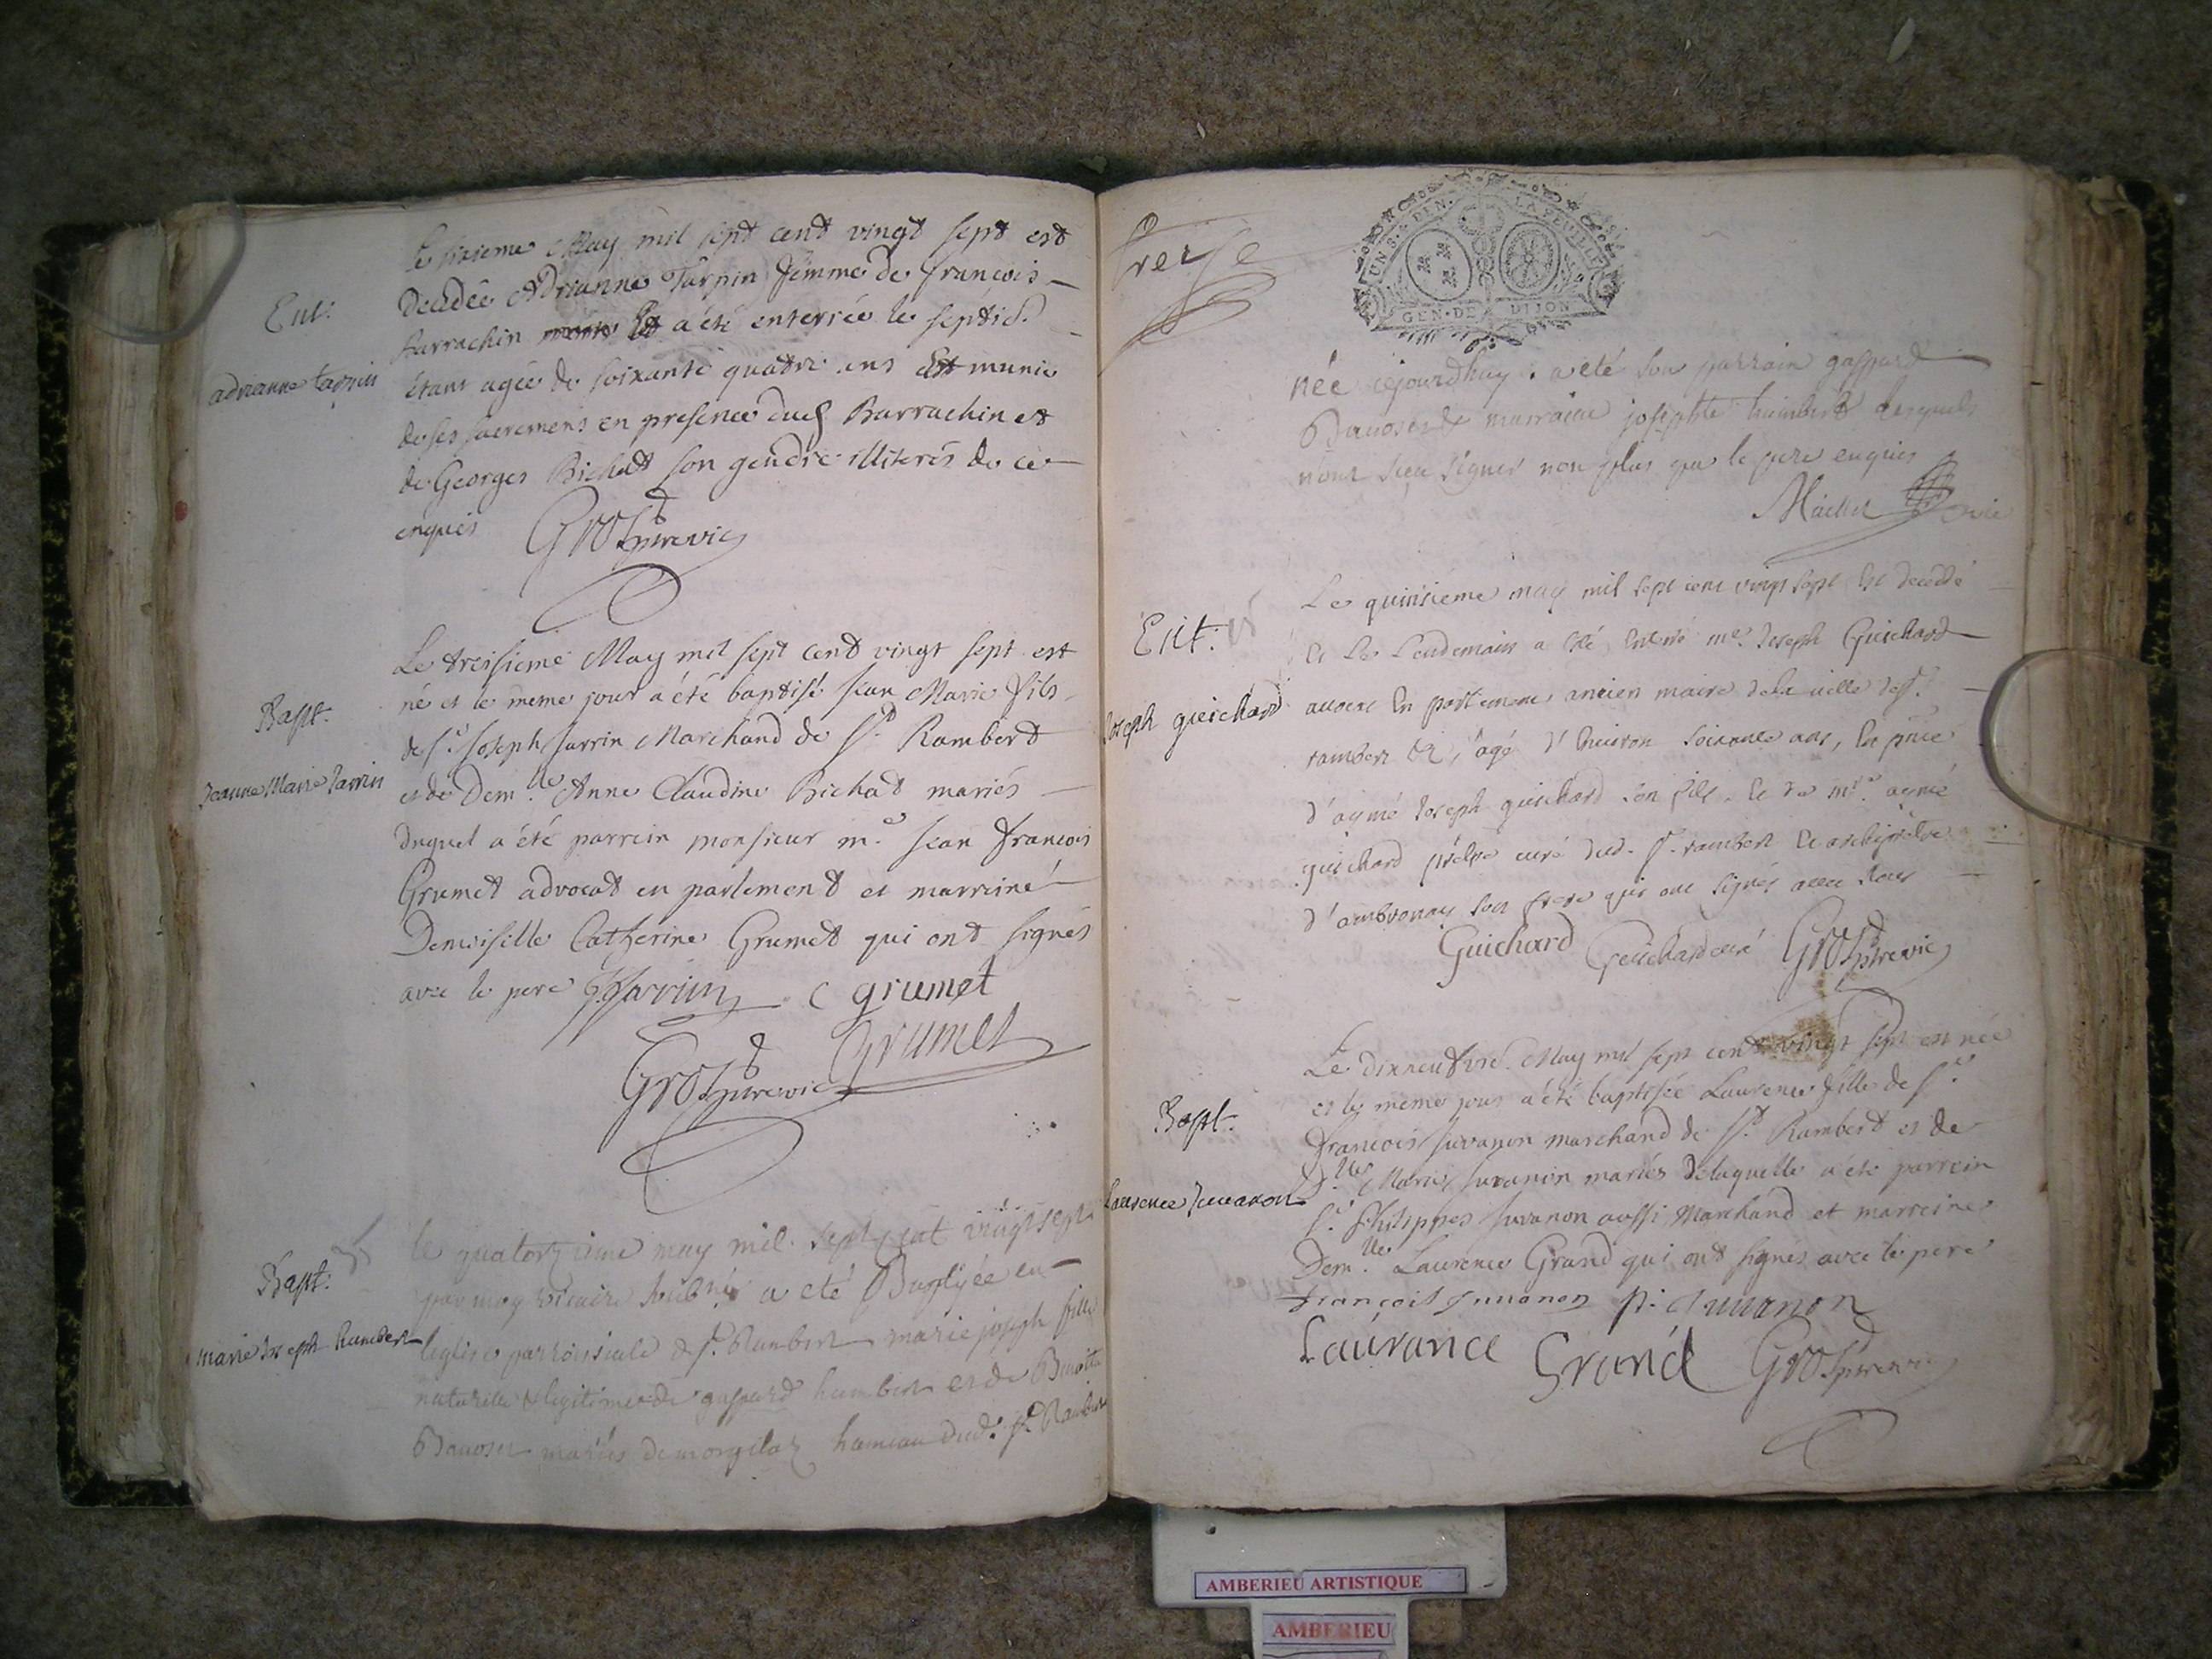 Le sixieme May mil sept cent vingt sept est
Decedée Adrianne Tarpin femme de françois
Barrachin a été enterrée le septie.
Ent:
adrianne tarpin
étant agée de soixante quatre ans Est munie
de ses sacremens en presence dud Barrachin et
de Georges Bichat son gendre illiterés de ce
enquis Grosp.d vic
Le treisieme May mil sept cent vingt sept est
né et le meme jour a été baptisé Jean Marie fils
Bapt.
de s.r Joseph Jarrin Marchand de S.t Rambert
Jeanne Marie Jarrin
et de Dem.lle Anne Claudine Bichat mariés
duquel a été parrein monsieur m.e Jean françois
Grumet advocat en parlement et marreine
Demoiselle Catherine Grumet qui ont signés
avec le pere J Jarrin c grumet
Grumet
le quatorzieme may mil sept cent vingt sept
Bapt:
par moy vicaire a été Baptisée en
marie Joseph humbert
leglise parroissiale de s.t Rambert marie joseph fille
naturelle & legitime de gaspard humbert et de
mariés hameau dud. s.t Rambert
treize
UN S. 4 DEN. LA FEUILLE
GEN. DE DIJON
née cejourdhuy. a été son parrain gaspard
& marraine josephte humbert lesquels
nont sceu signer non plus que le pere enquis
Le quinsieme may mil sept cent vingt sept est decedé
Ent:
et le lendemain a été enterré m.e Joseph Guichard
Joseph guichard
avocat en parlement ancien maire de la ville de s.t
rambert agé d'environ soixante ans, en p.nce
d'aymé Joseph guichard son fils, et de m.re aymé
guichard prêtre curé dud. s.t rambert et archiprêtre
d'ambronay son frere qui ont signés avec nous
Guichard Guichard curé
Le dixneufvie. May mil sept cent vingt sept est née
et le meme jour a été baptisée Laurence fille de s.r
Bapt.
françois Juvanon marchand de S.t Rambert et de
D.lle Marie Juvanon mariés de laquelle a été parrein
Laurence Juvanon
s.r Philippes Juvanon aussi Marchand et marreine
Dem.lle Laurence Grand qui ont signés avec le pere
françois Juvanon p. Juvanon
Laurance Grand
AMBERIEU ARTISTIQUE
AMBERIEU